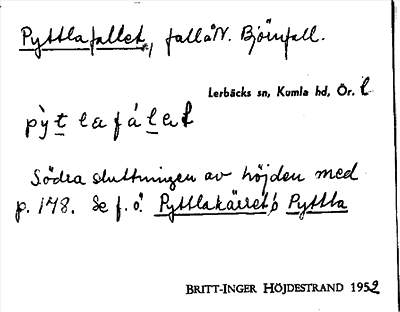 Pyttlafallet, falla N. Björnfall.
Lerbäcks sn, Kumla hd, Ör. l.
pỳt la fá let
Södra sluttningen av höjden med
p. 178. Se f.ö. Pyttlakärret o Pyttla
BRITT-INGER HÖJDESTRAND 1952